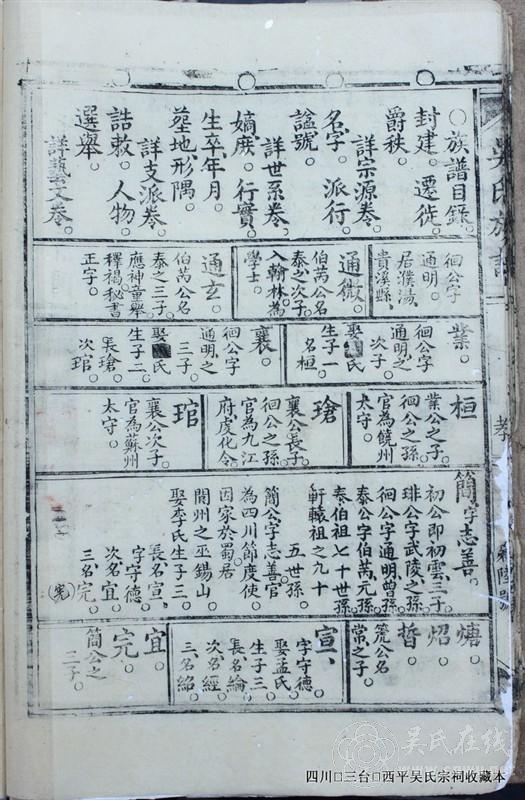 吳氏族譜
孝
○族譜目錄。
封建。遷徙。
爵秩。
詳宗源卷。
名字。派行。
諡號。
詳世系卷。
嫡庶。行實。
生卒年月。
塋地形隅。
詳支派卷。
誥敕。人物。
選舉。
詳藝文卷。
徊公字
通明。
居濮湯
貴溪縣。
通微。
伯萬公名
泰之次子。
入翰林為
學士。
通玄。
伯萬公名
泰之三子。
應神童舉
釋褐秘書
正字。
業。
徊公字
通明之
次子。
娶 氏
生子一
名桓
襄。
徊公字
通明之
三子。
娶 氏
生子二
長瑲。
次琯。
桓
業公之子。
徊公之孫。
官為饒州
太守。
瑲
襄公長子
徊公之孫
官為九江
府虔化令
琯
襄公次子
官為蘇州
太守。
簡字志善。
初公即初雲三子
琲公字武陵之孫
徊公字通明曾孫
泰公字伯萬元孫
泰伯祖七十世孫
軒轅祖之九十
五世孫
簡公字志善官
為四川節度使
因家於蜀居
閬州之巫錫山
娶李氏生子三。
長名宣。
字守德
次名宜。
三名完。
(宪)
㷟
炤
晢
箎公名
常之子。
宣、
字守德
娶孟氏
生子三
長名綸
次名經
三名紹
宜
完。
簡公之
三子。
吴氏在线
四川□三台□西平吴氏宗祠收藏本